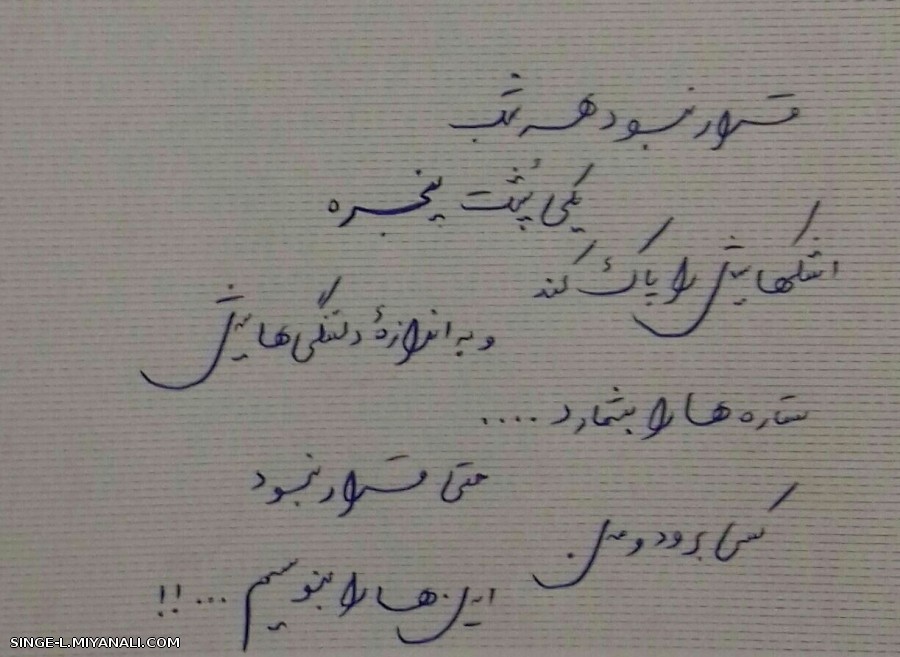 قرار نبود هر شب
یکی پشت پنجره
اشکهایش را پاک کند
و به اندازهٔ دلتنگی‌هایش
ستاره ها را بشمارد ....
حتی قرار نبود
کسی برود و من
این ها را بنویسم ... !!
SINGE-L.MIYANALI.COM